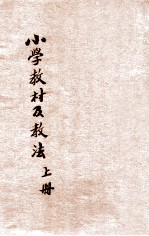 小學教材及教法上册